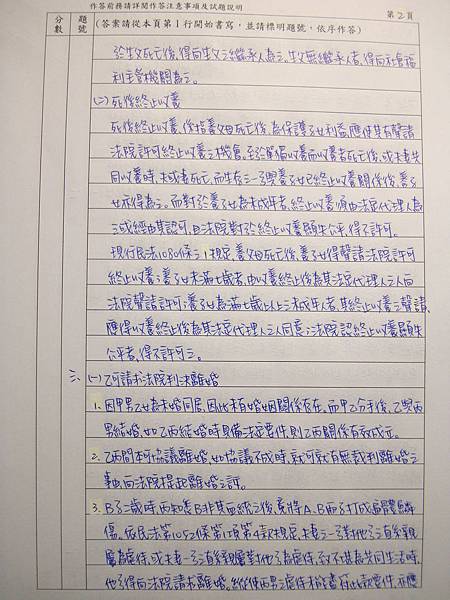 作答前務請詳閱作答注意事項及試題說明
第2頁
分數
題號
(答案請從本頁第1行開始書寫,並請標明題號,依序作答)
於生父死亡後,得向生父之繼承人為之。生父無繼承人者,得向社會福
利主管機關為之。
(二)死後終止收養
死後終止收養,係指養父母死亡後,為保護子女利益,應使其有聲請
法院許可終止收養之機會。至於單獨收養而收養者死亡後,或夫妻共
同收養時,夫或妻死亡,而生存之一方與養子女已終止收養關係後,養子
女亦得為之。而對於養子女為未成年者,終止收養須由法定代理人為
之或經由其認可,且法院對於終止收養顯失公平,得不許可。
現行民法1080條之1規定,養父母死亡後,養子女得聲請法院許可
終止收養;養子女未滿七歲者,由收養終止後為其法定代理人之人向
法院聲請許可;養子女為滿七歲以上之未成年者,其終止收養之聲請,
應得收養終止後為其法定代理人之人同意;法院認終止收養顯失
公平者,得不許可之。
三、(一)乙可請求法院判決離婚
1.因甲男乙女為未婚同居,因此未有婚姻關係存在。而甲乙分手後,乙與丙
男結婚,如乙丙結婚時具備法定要件,則乙丙關係有效成立。
2.乙丙間本可協議離婚,如協議不成時,就可就有無裁判離婚之
事由,向法院提起離婚之訴。
3.B子二歲時,丙知悉B非其血統之後,竟將A、B兩子打成遍體鱗
傷。依民法第1052條第1項第4款規定,夫妻之一方對他方之直系親
屬為虐待,或夫妻一方之直系親屬對他方為虐待,致不堪為共同生活時,
他方得向法院請求離婚。